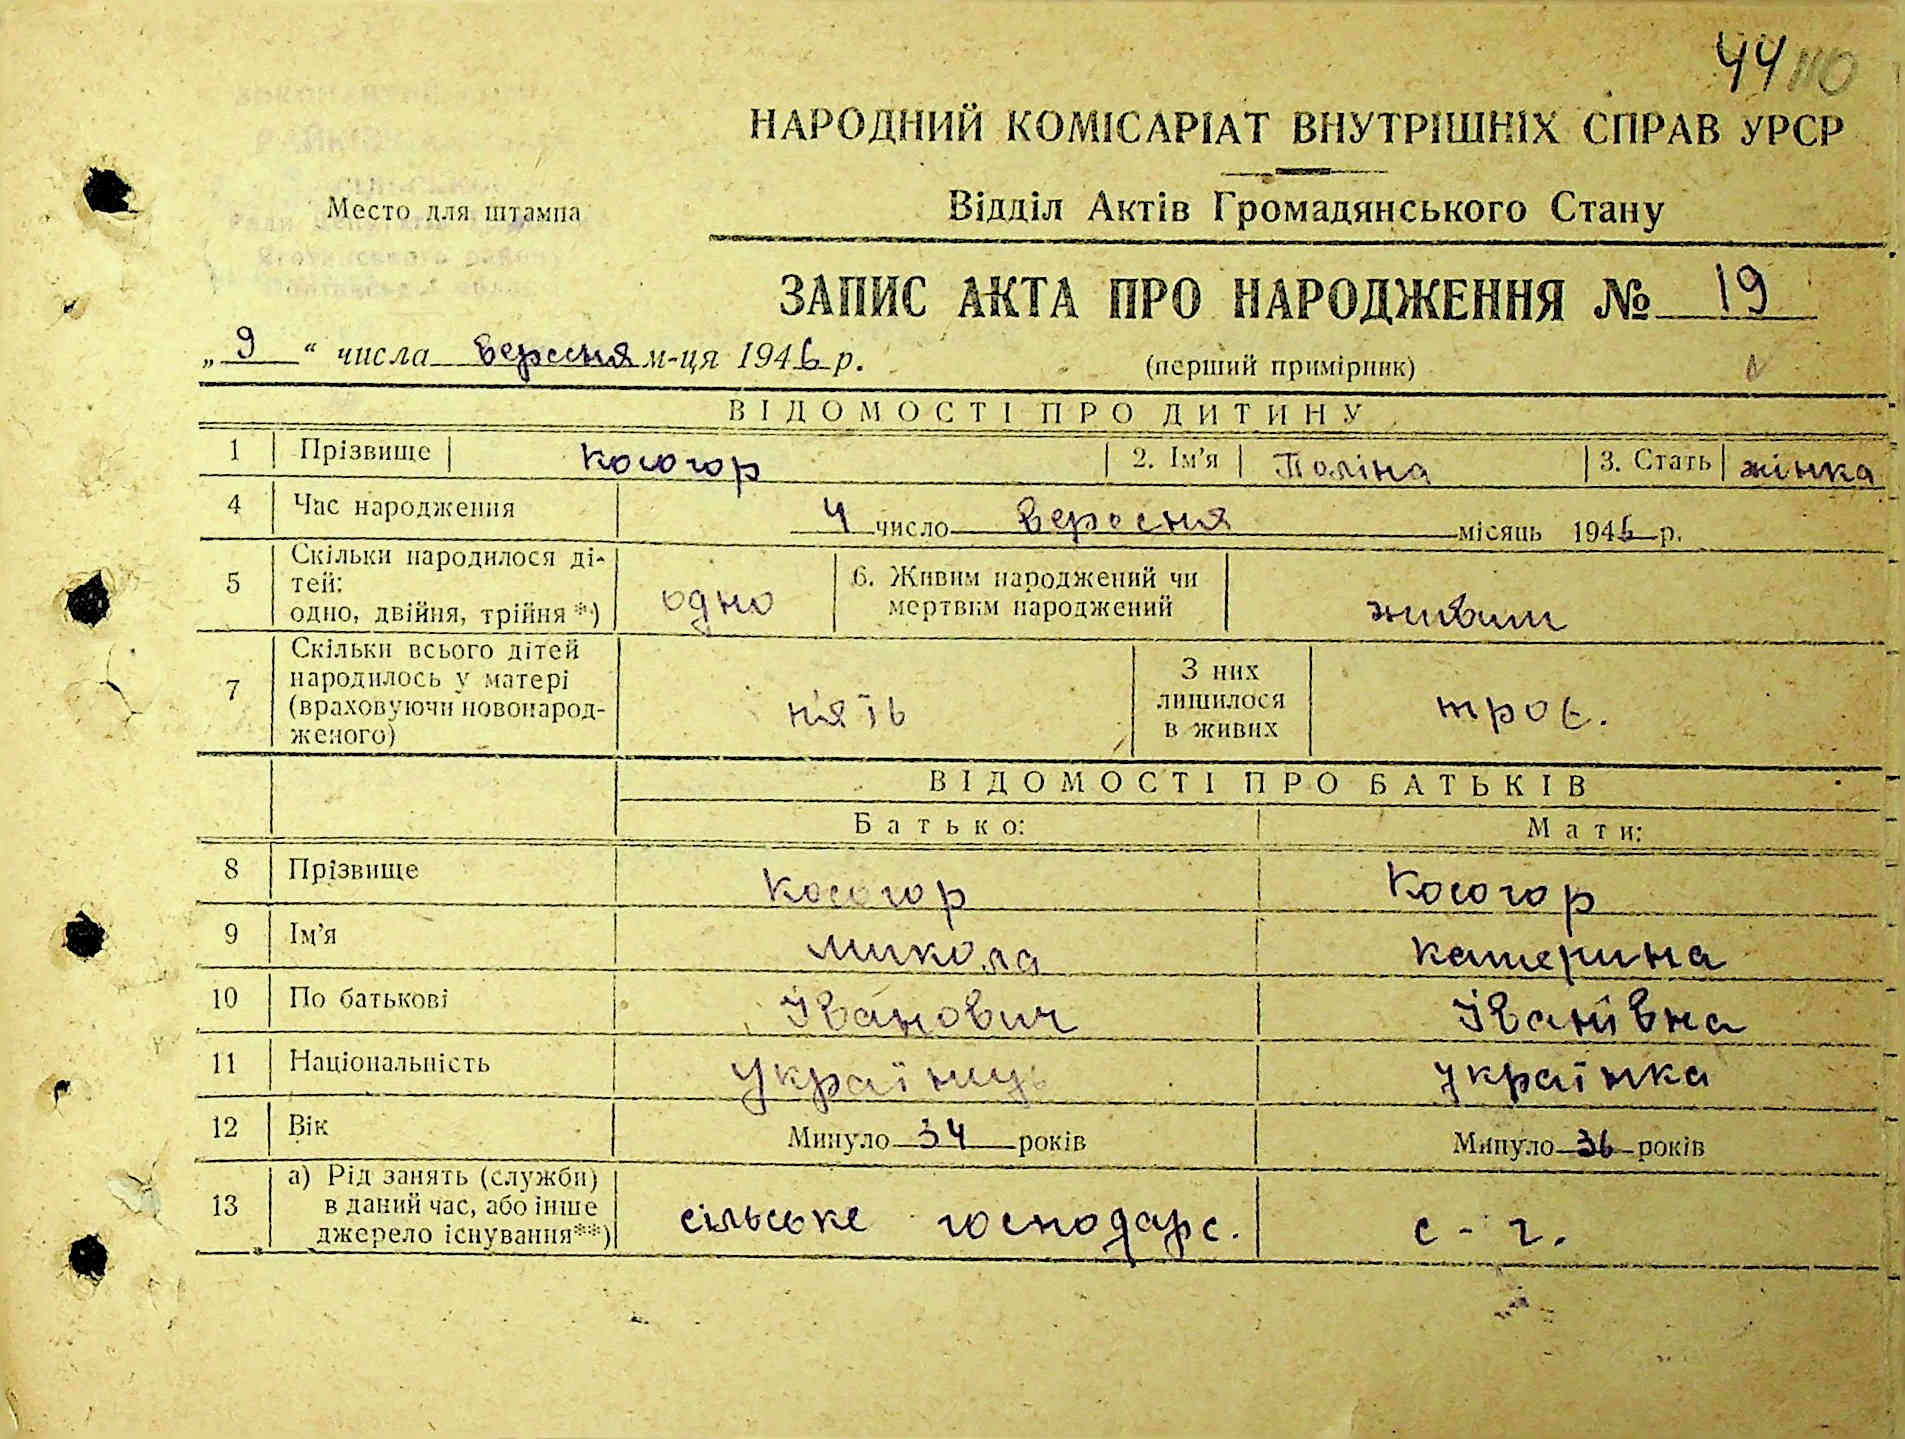 44 110
НАРОДНИЙ КОМІСАРІАТ ВНУТРІШНІХ СПРАВ УРСР
Место для штампа
Відділ Актів Громадянського Стану
ЗАПИС АКТА ПРО НАРОДЖЕННЯ № 19
„ 9 “ числа вересня м-ця 1946 р.
(перший примірник)
ВІДОМОСТІ ПРО ДИТИНУ
1 Прізвище Косогор 2. Ім'я Поліна 3. Стать жінка
4 Час народження 4 число вересня місяць 1946 р.
5 Скільки народилося ді-
тей:
одно, двійня, трійня *) одно
6. Живим народжений чи
мертвим народжений живим
7 Скільки всього дітей
народилось у матері
(враховуючи новонарод-
женого) п'ять
З них
лишилося
в живих троє.
ВІДОМОСТІ ПРО БАТЬКІВ
Батько: Мати:
8 Прізвище Косогор Косогор
9 Ім'я Микола Катерина
10 По батькові Іванович Іванівна
11 Національність українець українка
12 Вік Минуло 34 років Минуло 36 років
13 а) Рід занять (служби)
в даний час, або інше
джерело існування**) сільське господарс. с-г.